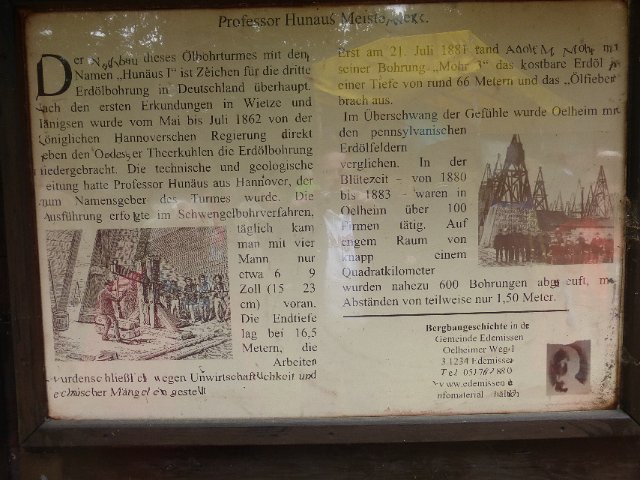 Professor Hunäus Meisterwerk.
Der Nachbau dieses Ölbohrturmes mit dem
Namen „Hunäus I" ist Zeichen für die dritte
Erdölbohrung in Deutschland überhaupt.
ach den ersten Erkundungen in Wietze und
länigsen wurde vom Mai bis Juli 1862 von der
königlichen Hannoverschen Regierung direkt
eben den Oedesser Theerkuhlen die Erdölbohrung
niedergebracht. Die technische und geologische
eitung hatte Professor Hunäus aus Hannover, der
zum Namensgeber des Turmes wurde. Die
Ausführung erfolgte im Schwengelbohrverfahren,
täglich kam
man mit vier
Mann nur
etwa 6 - 9
Zoll (15 - 23
cm) voran.
Die Endtiefe
lag bei 16,5
Metern, die
Arbeiten
wurden schließlich wegen Unwirtschaftlichkeit und
technischer Mängel eingestellt
Erst am 21. Juli 1881 fand Adolf M. Mohr mit
seiner Bohrung „Mohr 3" das kostbare Erdöl
einer Tiefe von rund 66 Metern und das „Ölfieber
brach aus.
Im Überschwang der Gefühle wurde Oelheim mit
den pennsylvanischen
Erdölfeldern
verglichen. In der
Blütezeit - von 1880
bis 1883 - waren in
Oelheim über 100
Firmen tätig. Auf
engem Raum von
knapp einem
Quadratkilometer
wurden nahezu 600 Bohrungen abgeteuft, in
Abständen von teilweise nur 1,50 Meter.
Bergbaugeschichte in der
Gemeinde Edemissen
Oelheimer Weg 1
31234 Edemissen
Tel
www.edemissen.de
nfomaterial